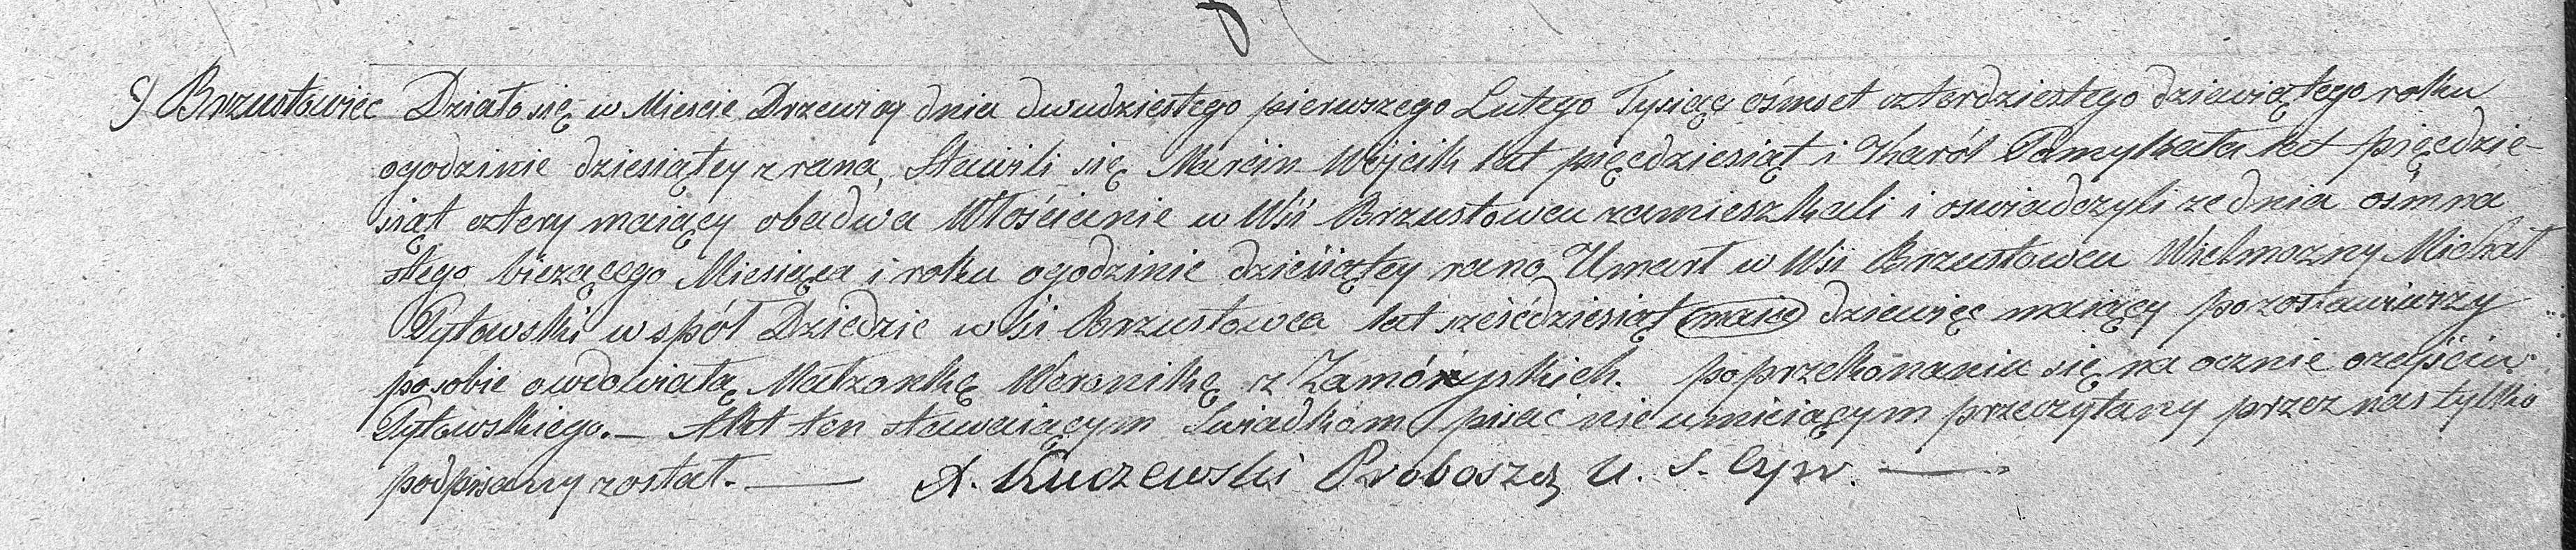 9) Brzustowiec Działo się w Mieście Drzewicy dnia dwudziestego pierwszego Lutego Tysiąc ośmset czterdziestego dziewiątego roku
ogodzinie dziesiątey z rana, Stawili się Marcin Wójcik lat pięćdziesiąt i Karól Pamykała lat pięćdzie-
siąt cztery maiący obadwa Włościanie w Wśi Brzustowcu zamieszkali i oswiadczyli ze dnia ośmna
stego bieżącego Miesiąca i roku ogodzinie dziesiątey rano Umarł w Wsi Brzustowcu Wielmozny Michał
Pytowski współ Dziedzic wśi Brzustowca lat sześćdziesiąt (maią) dziewięć maiący pozostawiwszy
posobie owdowiałę Małzonkę Weronikę z Zamóyskich. poprzekonaniu się na ocznie ozejściu
Pytowskiego.— Akt ten stawaiącym Swiadkom pisać nie umieiącym przeczytany przez nas tylko
podpisany został. — A. Kuczewski Proboszcz U. S. Cyw. —